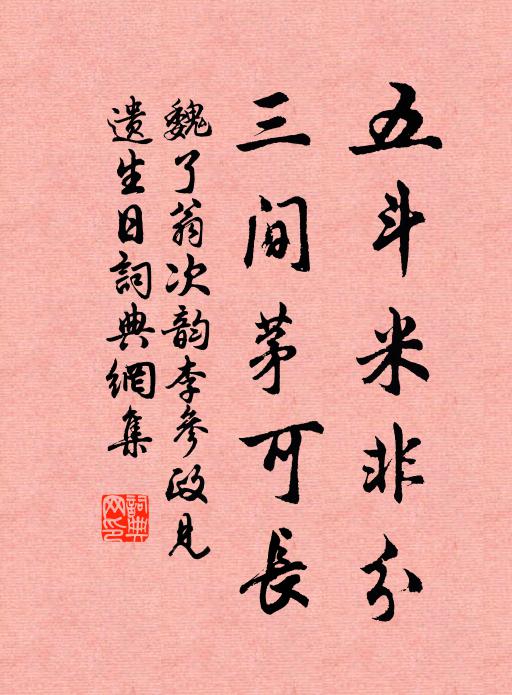 五斗米非分
三间茅可長
魏了翁次韵李參政見
遺生日詞典網集
詞典网印